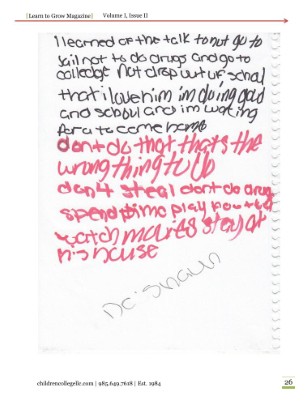 [Learn to Grow Magazine] Volume 1, Issue II
I learned of the talk to not go to
Jail not to do drugs and go to
colledge Not drop out of school
that i love him im doing gad
and school and im wating
for a to come home
dont do that thats the
wrong thing to Do
don4 steal dont do drug
spend time play
watch stay at
his house
De'Shaun
childrencollegefic.com | 985.649.7618 | Est. 1984
26